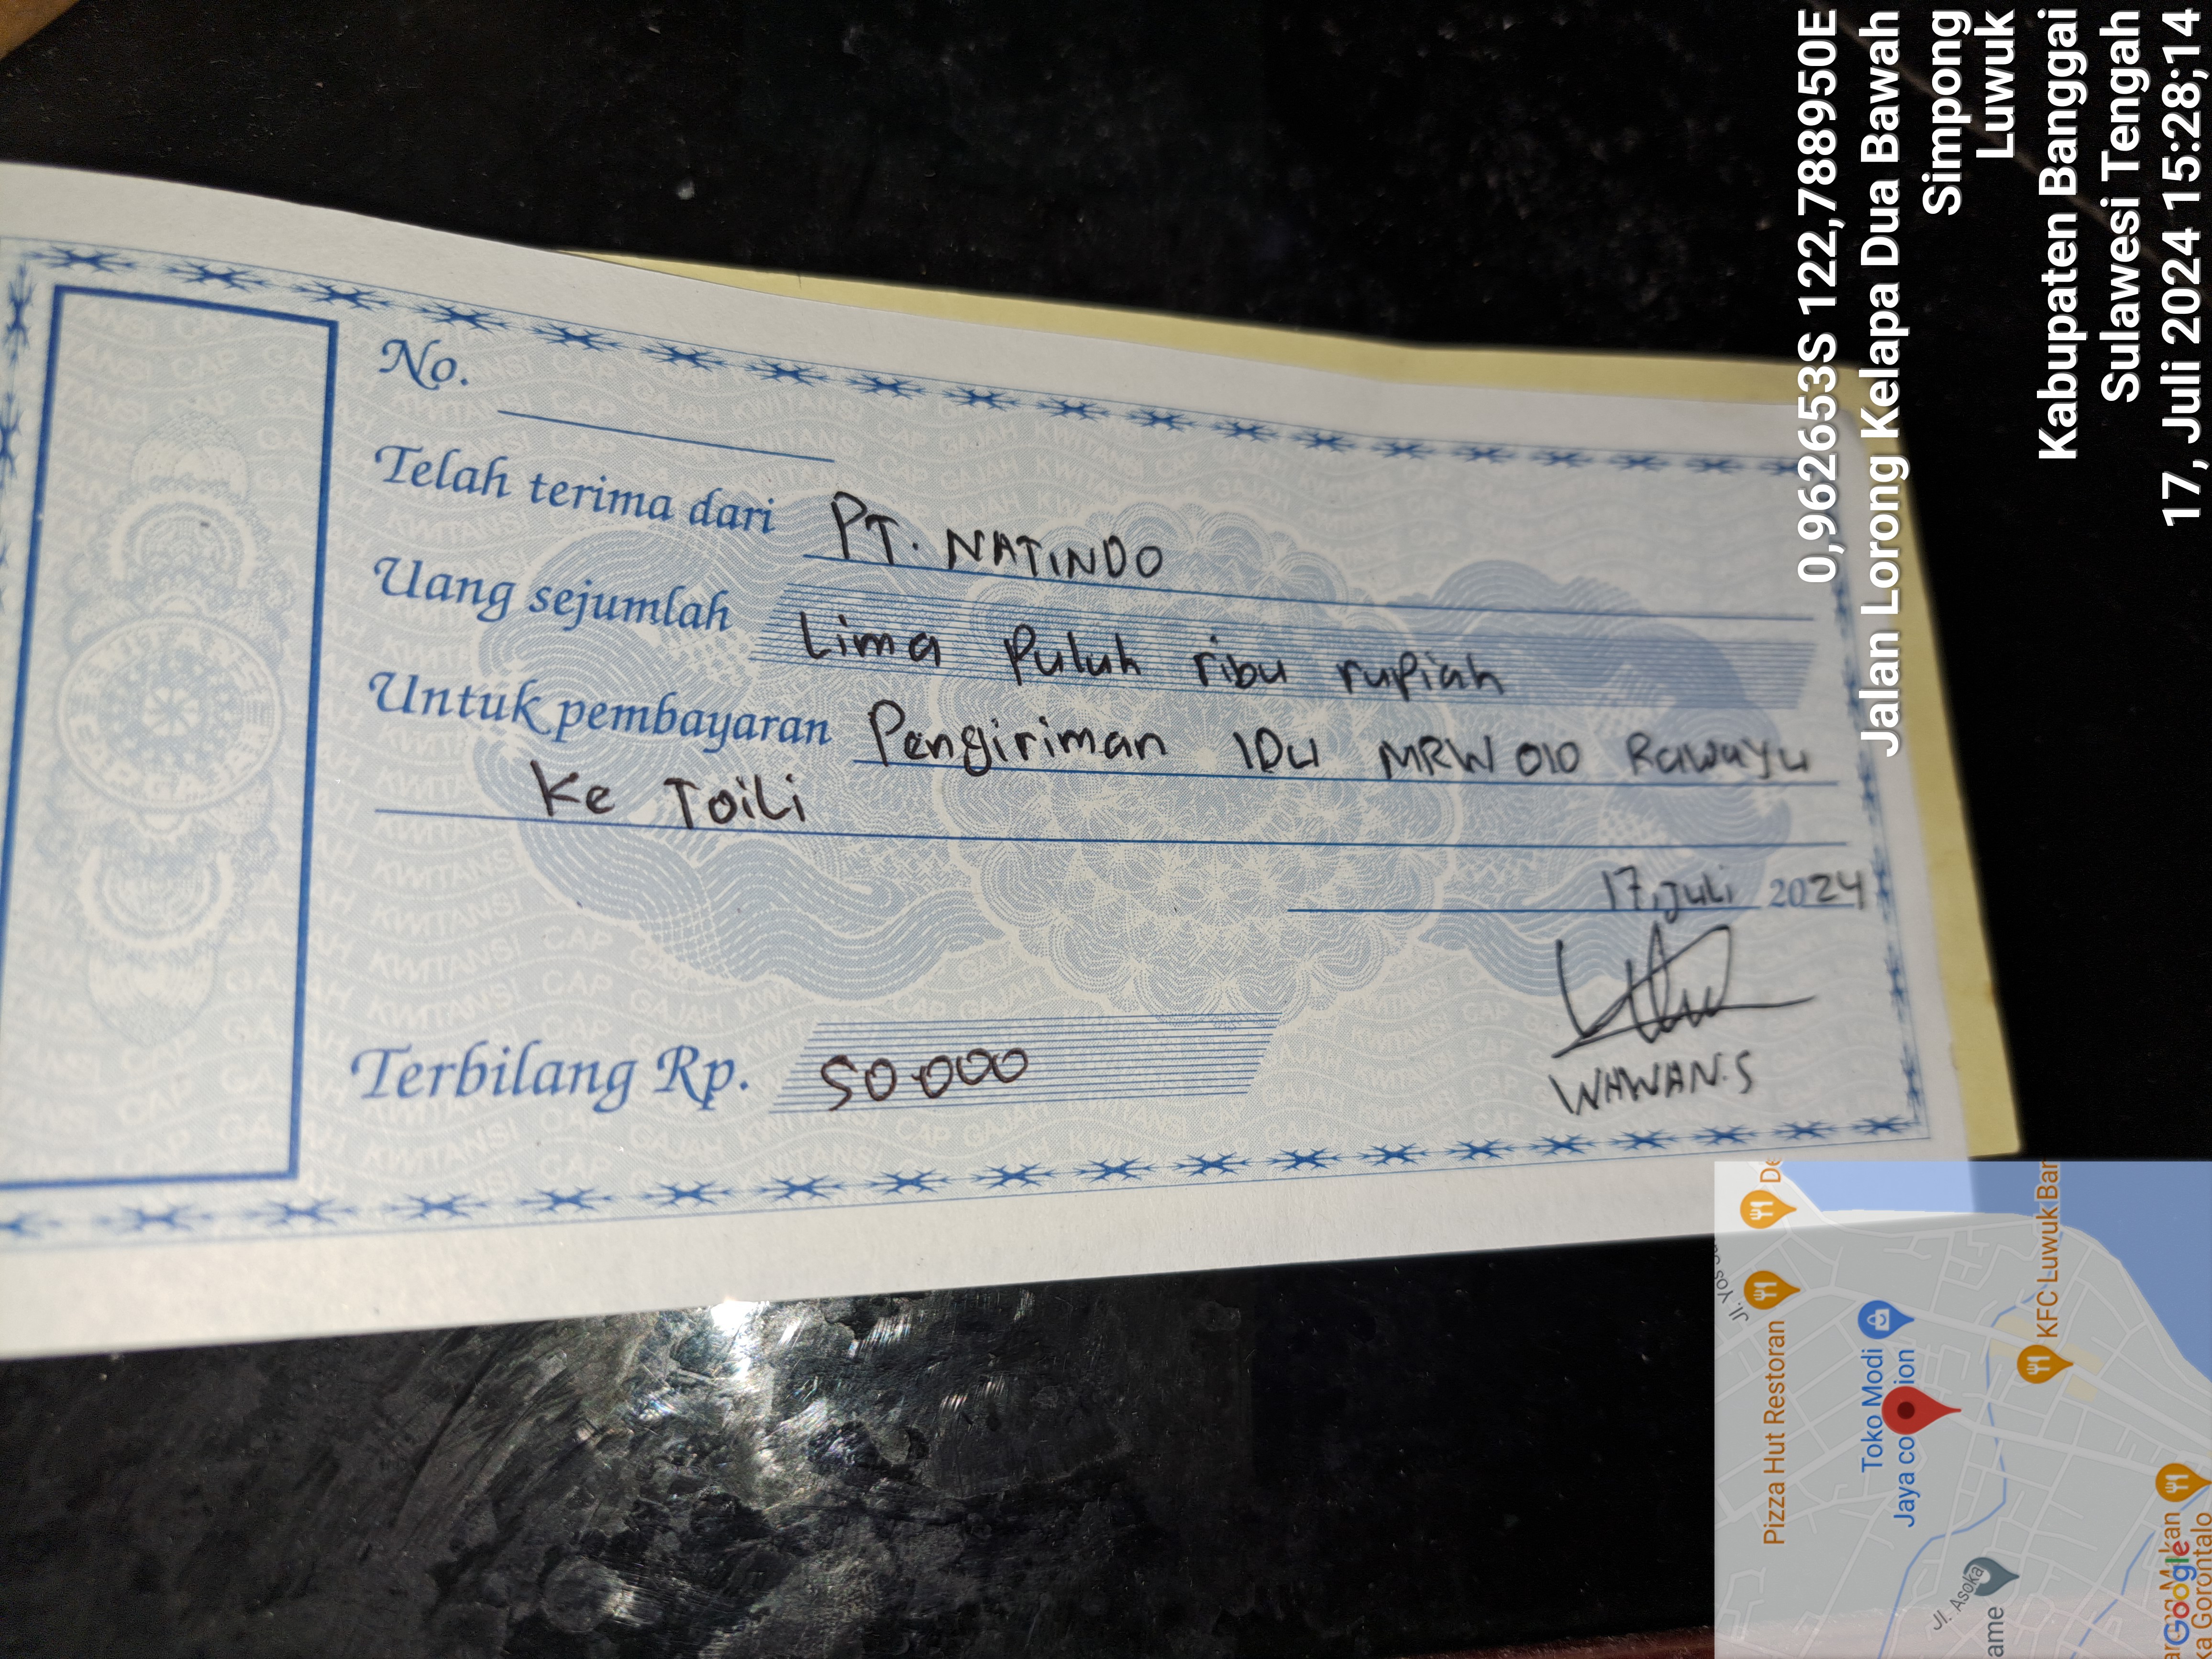 No.
Telah terima dari PT. NATINDO
Uang sejumlah Lima Puluh ribu rupiah
Untuk pembayaran Pengiriman IDU MRW 010 Rawayu
Ke Toili
17, Juli 2024
Terbilang Rp. 50.000
WAWAN.S
0,962653S 122,788950E
Jalan Lorong Kelapa Dua Bawah
Simpong
Luwuk
Kabupaten Banggai
Sulawesi Tengah
17, Juli 2024 15:28;14
Pizza Hut Restoran
Toko Modi
Jaya co ion
KFC Luwuk Ban
Jl. Asoka
ame
Google
ka Gorontalo